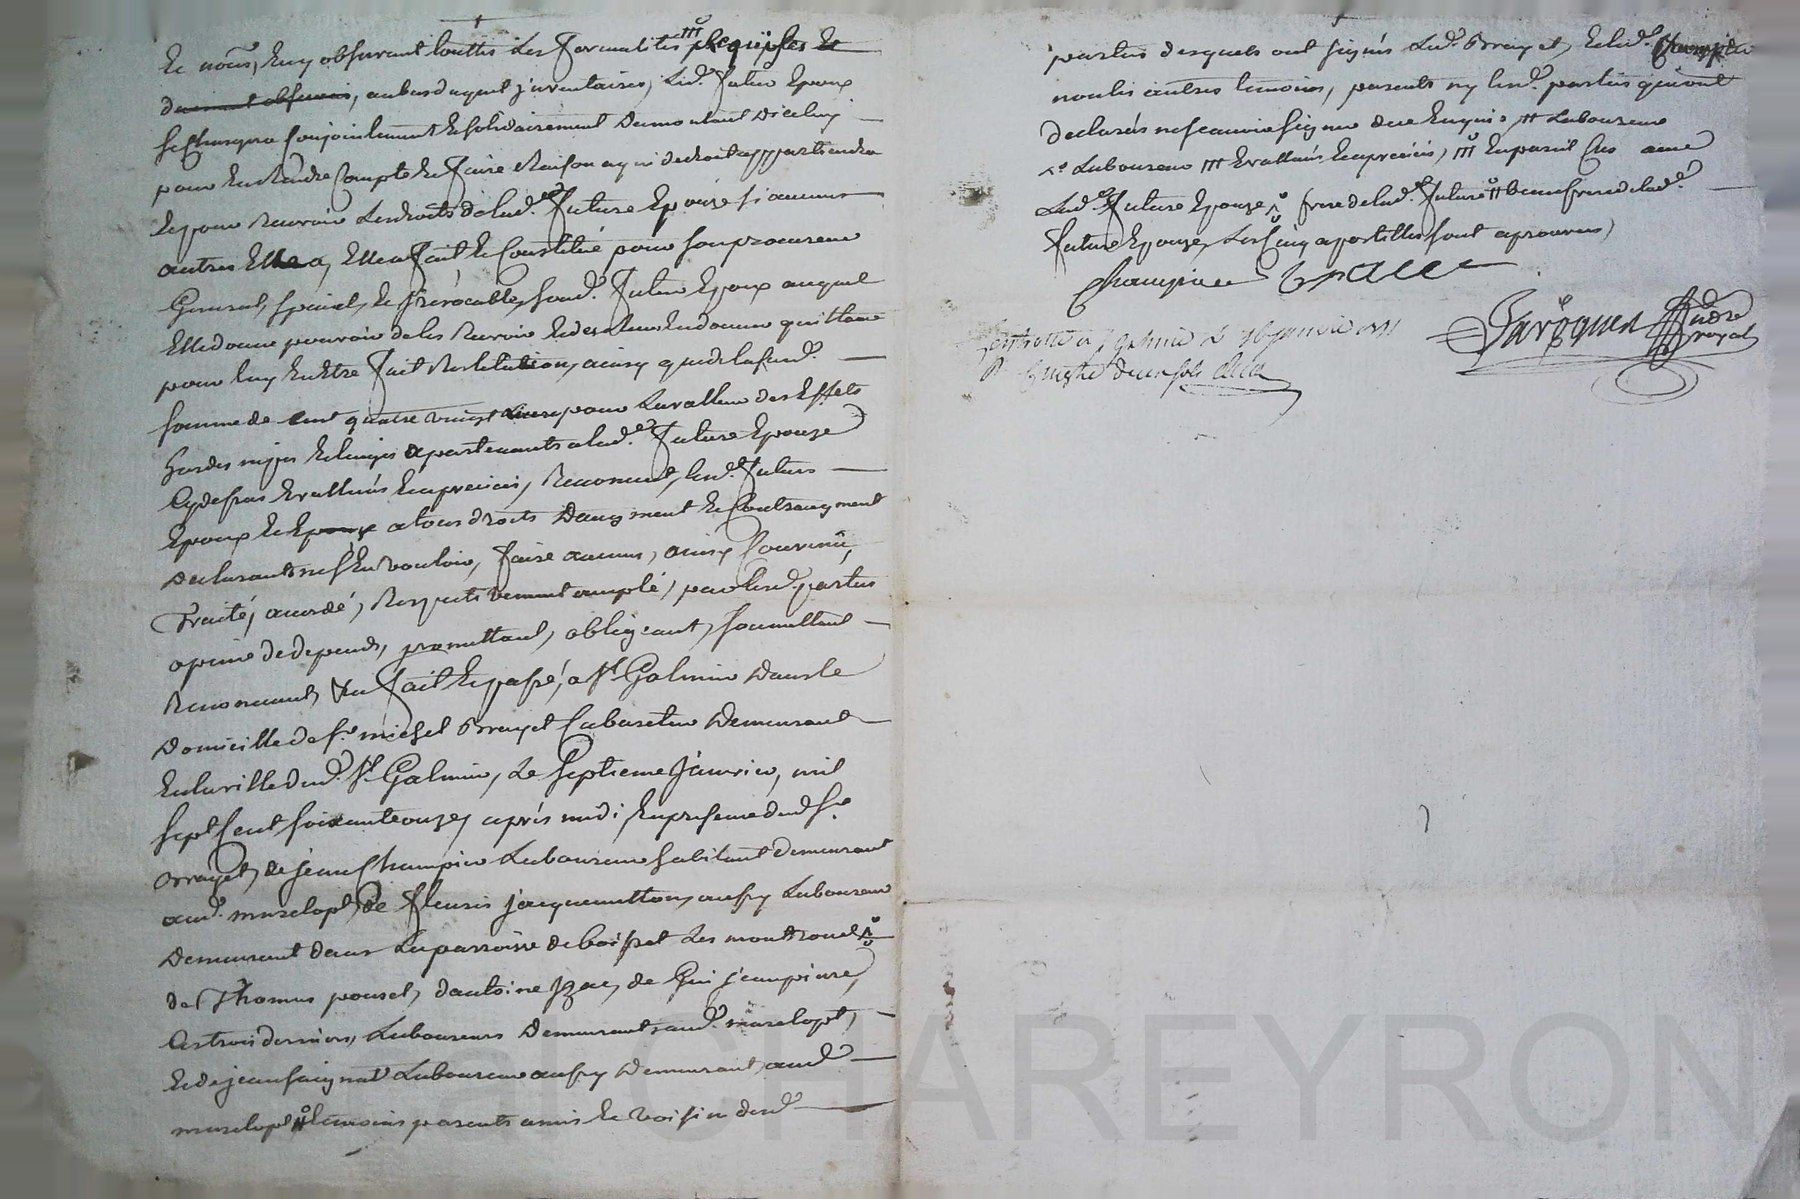 Et nous, En y observant touttes Les Formalités Requises Et
duement observées, aubas duquel jnventaires, Led. Futur Epoux
se Chargera Conjointement Et solidairement du montant Diceluy
pour En Rendre Compte Et Faire Raison a qui de droit appartiendra
Et pour Recevoir Les droits de lad.e Future Epouze si aucuns
autres Elle a, Elle a Fait Et Constitué pour son procureur
General, special, Et jrrévocable, sond. Futur Epoux auquel
Elle donne pouvoir de les Recevoir Et den donner quittance
pour luy En Etre Fait Restitution, ainsy que de lasusd.
somme de Cent quatre vingt Livres pour La valleur des Effets
hardes nippes Et linges apartenants a lad.e Future Epouze
Cy dessus Evallués Et apreciés, Renoncent, Lesd. Futurs
Epoux Et Epouze a tous droits Daugment Et Contraugment
Declarants nes En vouloir, Faire aucuns, ainsy Convenu,
Traité, acordé, Respectivement accepté, par Lesd. parties
a peine de depends, promettant, obligeant, soumettant
Renonceant, Fait Et passé, a St Galmier Dans le
Domicille de sr. michel Brayet Cabaretier Demeurant
En la ville dud. St. Galmier, Le septieme Janvier, mil
sept Cent soixante onze, après midi, En presence dud Sr.
Brayet, de jean Champier Laboureur habitant demeurant
aud. marclopt, De Fleuris jacquemetton, aussy Laboureur
Demeurant dans La parroisse de boisset Les montrond
de Thomas poncet, dantoine jzac, de Gui jean pierre,
Ces trois derniers, Laboureurs Demeurants aud. marclopt,
Et de jean saignat Laboureur aussy Demeurant, aud
marclopt temoins parents amis Et voisin desd.
parties desquels ont signés Led. Brayet, Et led. Champier
non les autres temoins, parents ny Lesd. parties qui ont
declarés ne scavoir signer de ce Enquis, Laboureur
Laboureur Evallués Et apreciés, En pareil Cas avec
Lad.e Future Epouze frere de lad.e Future beau frere de lad.e
Future Epouze, Les Cinq apostilles sont aprouvées,
Champier Brayet
Controllé a St galmier Le janvier 1771